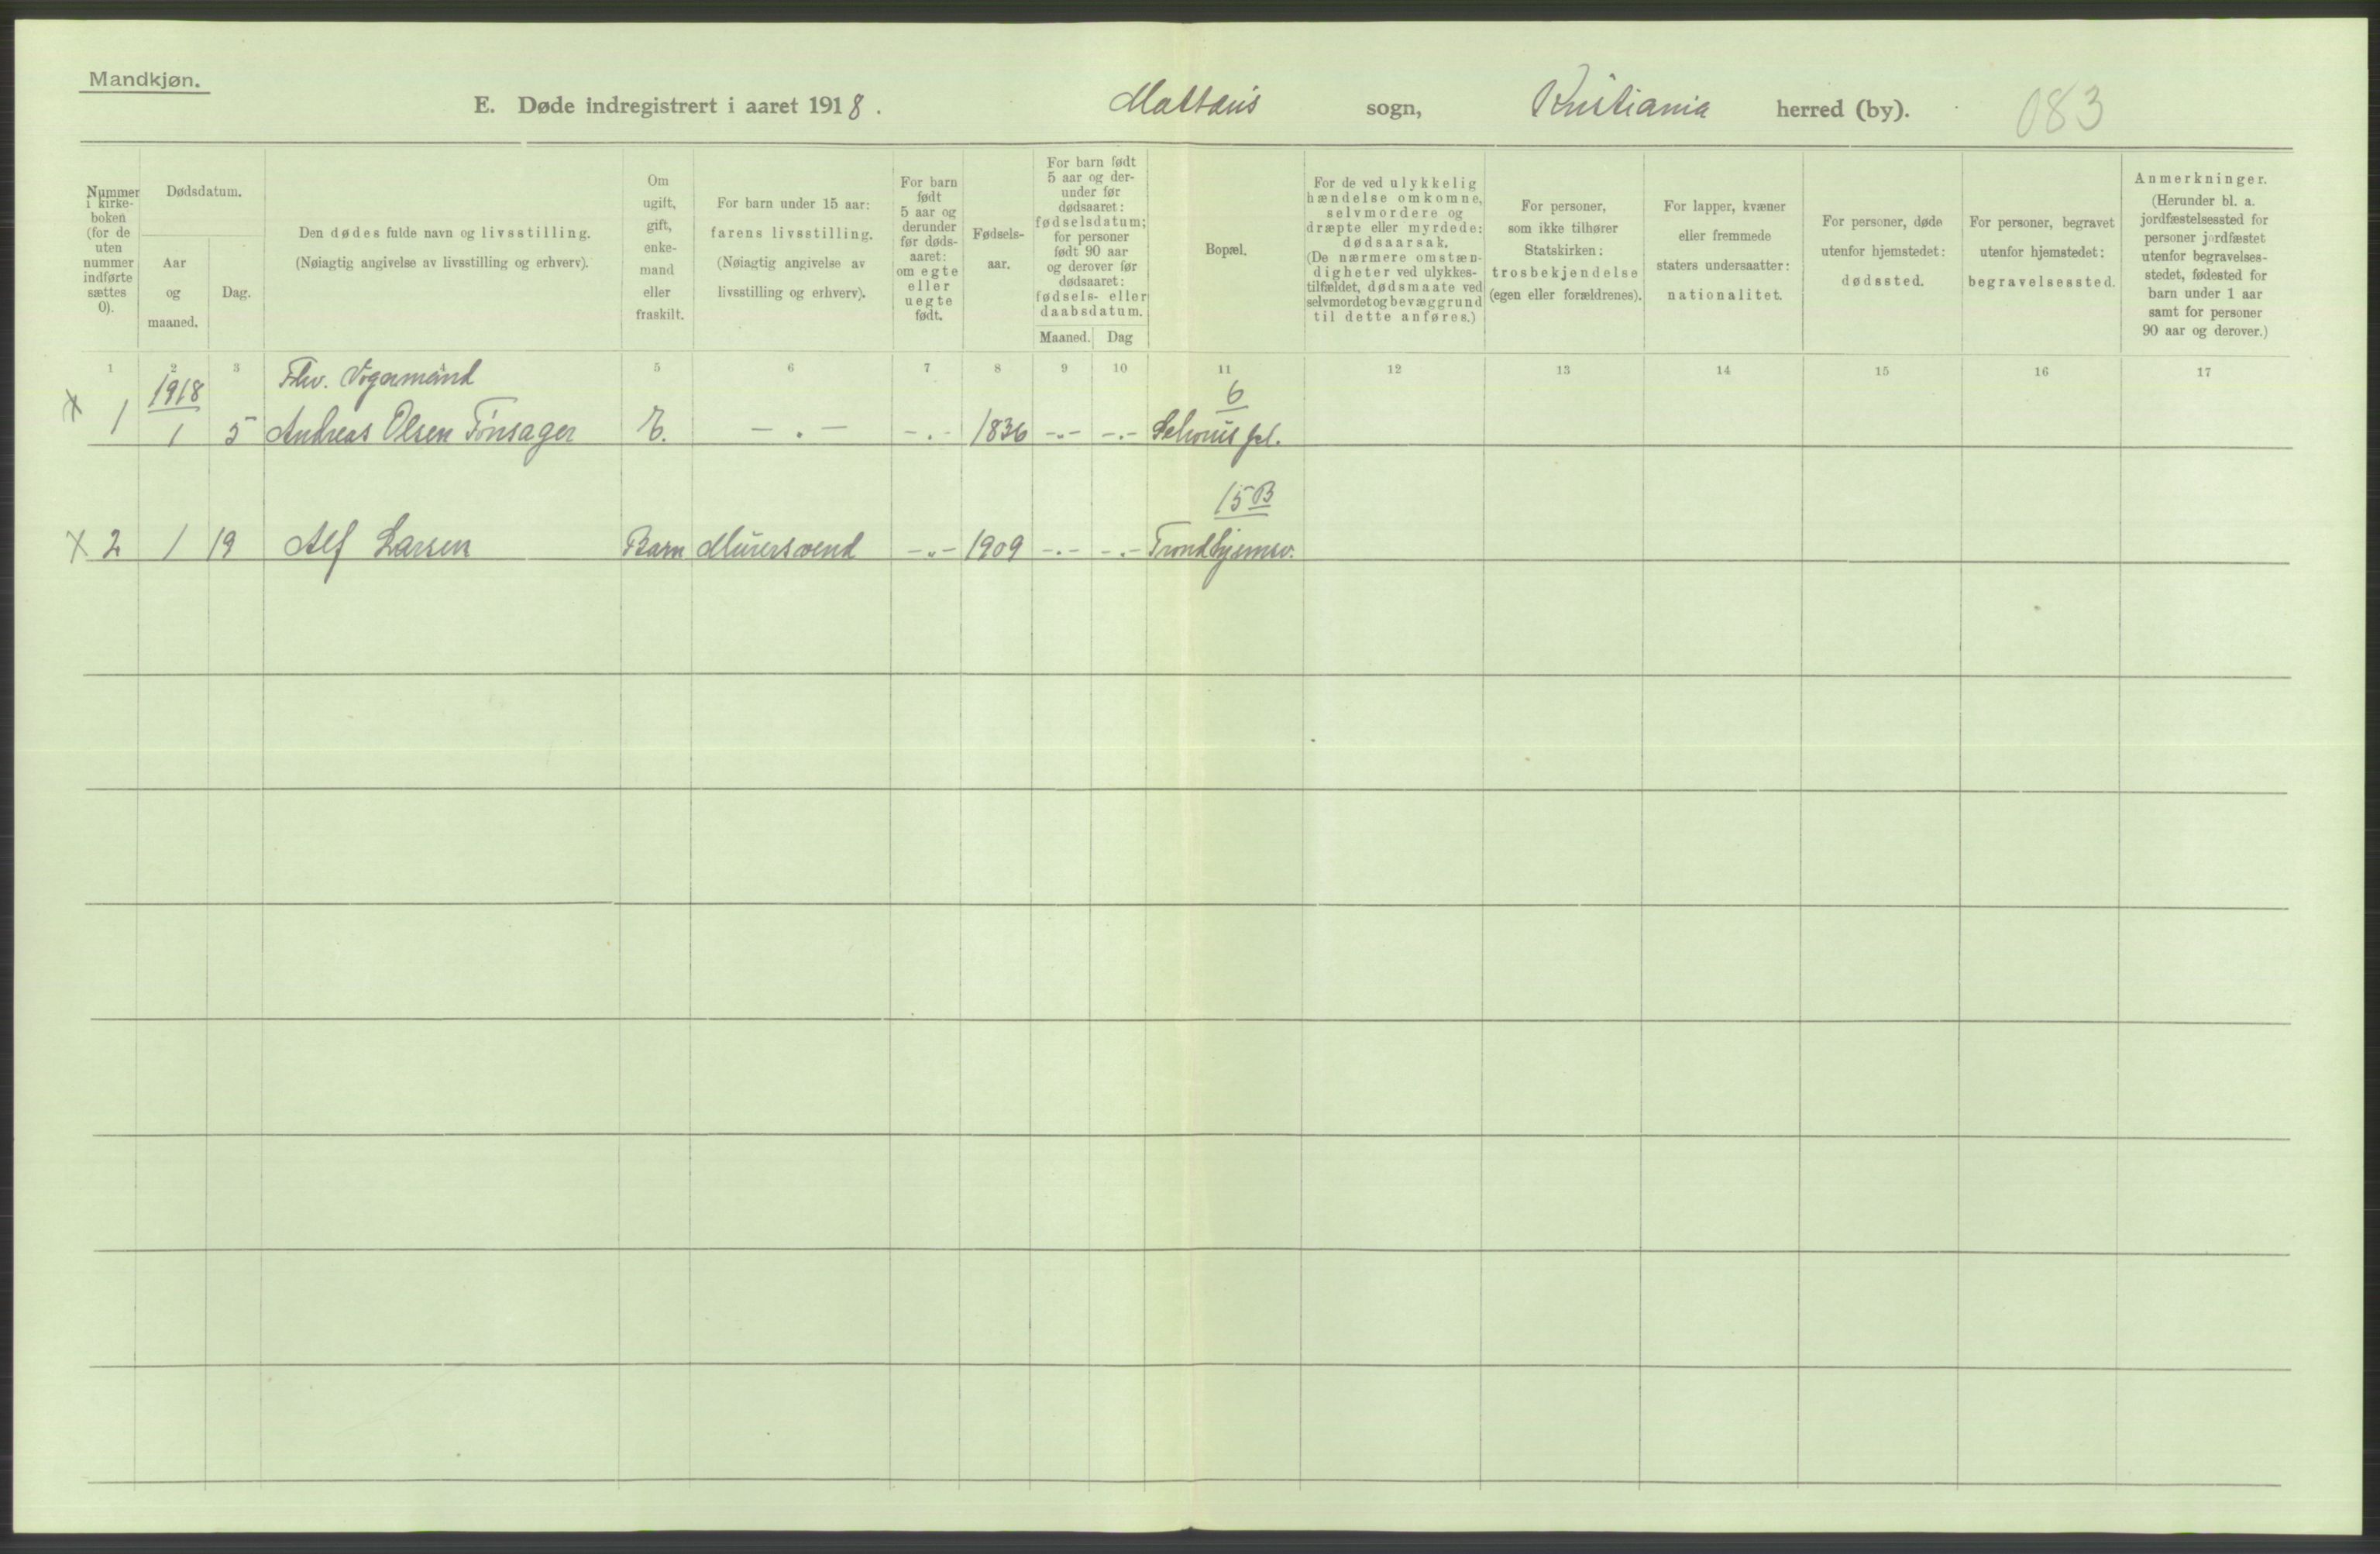 Mandkjøn.
E. Døde indregistrert i aaret 1918. Mattæus sogn, Kristiania herred (by). 083
Nummer i kirke-
boken
(for de
uten
nummer
indførte
sættes
0).
Dødsdatum.
Aar
og
maaned.
Dag.
Den dødes fulde navn og livsstilling.
(Nøiagtig angivelse av livsstilling og erhverv).
Om
ugift,
gift,
enke-
mand
eller
fraskilt.
For barn under 15 aar:
farens livsstilling.
(Nøiagtig angivelse av
livsstilling og erhverv).
For barn
født
5 aar og
derunder
før døds-
aaret:
om egte
eller
uegte
født.
Fødsels-
aar.
For barn født
5 aar og der-
under før
dødsaaret:
fødselsdatum;
for personer
født 90 aar
og derover før
dødsaaret:
fødsels- eller
daabsdatum.
Maaned. Dag
Bopæl.
For de ved ulykkelig
hændelse omkomne,
selvmordere og
dræpte eller myrdede:
dødsaarsak.
(De nærmere omstæn-
digheter ved ulykkes-
tilfældet, dødsmaate ved
selvmordet og bevæggrund
til dette anføres.)
For personer,
som ikke tilhører
Statskirken:
trosbekjendelse
(egen eller forældrenes).
For lapper, kvæner
eller fremmede
staters undersaatter:
nationalitet.
For personer, døde
utenfor hjemstedet:
dødssted.
For personer, begravet
utenfor hjemstedet:
begravelsessted.
Anmerkninger.
(Herunder bl. a.
jordfæstelsessted for
personer jordfæstet
utenfor begravelses-
stedet, fødested for
barn under 1 aar
samt for personer
90 aar og derover.)
1 2 3 5 6 7 8 9 10 11 12 13 14 15 16 17
1918 Fhv. Vognmand 6
x 1 1 5 Andreas Olsen Tønsager E. — . — - . - 1836 - . - - . - Schous pl.
15 B
x 2 1 19 Alf Larsen Barn Murersvend - . - 1909 - . - - . - Trondhjemsv.